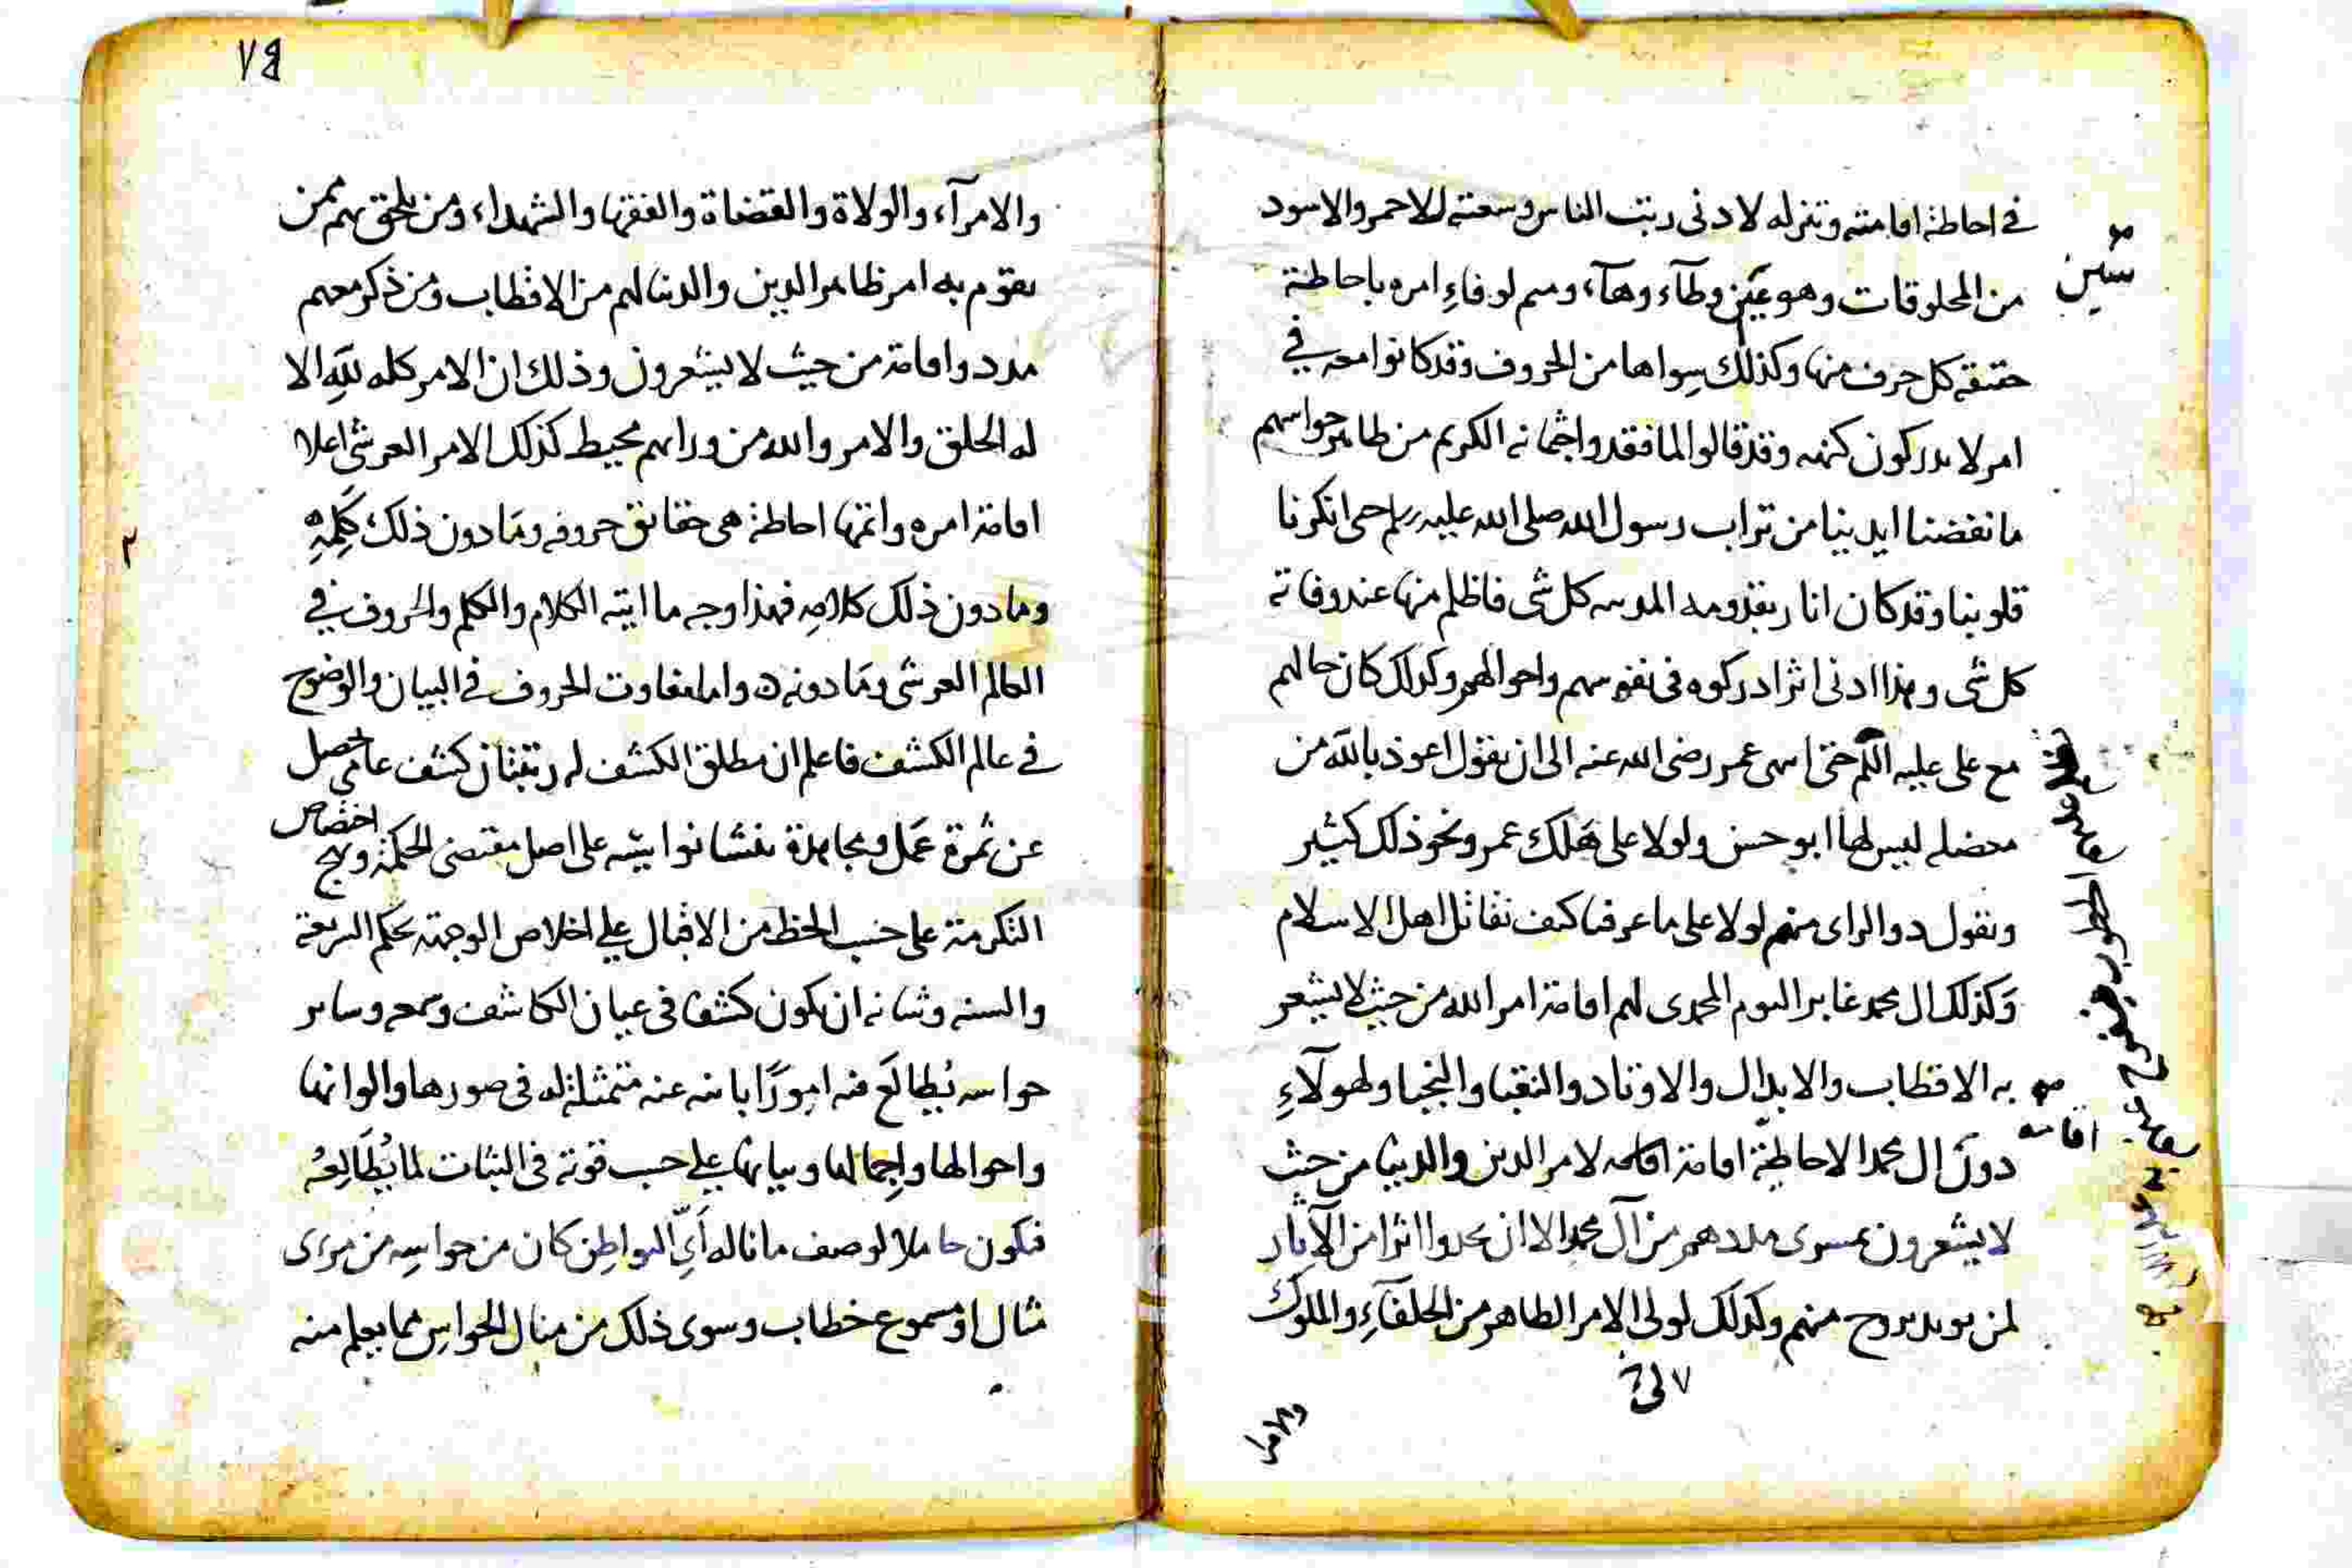 في احاطة اقامته وتنزله لادنى رتب الناس وسعته للاحمر والاسود
سين
من المخلوقات وهو عين وطآء وهآء، وميم لوفاءِ امره باحاطة
حقيقة كل حرف منها وكذلك سِواها من الحروف وقد كانوا معه في
امر لا يدركون كنهه وقد قالوا لما فقدوا جثمانه الكريم من ظاهر حواسهم
ما نفضنا ايدينا من تراب رسول الله صلى الله عليه وسلم حتى انكرنا
قلوبنا وقد كان انار بقدومه المدينه كل شى فاظلم منها عند وفاته
كل شى وهذا ادنى اثر ادركوه فى نفوسهم واحوالهم وكذلك كان حالهم
مع على عليه السلم حتى انتهى عمر رضى الله عنه الى ان يقول اعوذ بالله من
معضله ليس لها ابو حسن ولولا على هَلك عمر ونحو ذلك كثير
ويقول ذوالراى منهم لولا على ما عرفنا كيف نقاتل اهل الاسلام
وَكذلك ال محمد غابر اليوم المحمدى لهم اقامة امر الله من حيث لا يشعر
به الاقطاب والابدال والاوتاد والنقبا والنجبا ولهولآءِ
اقامه
دون ال محمد الاحاطية اقامة اقامه لامر الدين والدنيا من حيث
لا يشعرون بمسرى مددهم من آل محمد الا ان يجدوا اثرا من الآثار
لمن يويد بروح منهم وكذلك لولى الامر الظاهر من الخلفآءِ والملوك
والامرا
٧٤
والامرآء، والولاة والقضاة والفقها والشهداء، ومن يلحق بهم ممن
يقوم به امر ظاهر الدين والدنيا لهم من الاقطاب ومن ذكر معهم
مدد واقامة من حيث لا يشعرون وذلك ان الامر كله للهِ الا
له الخلق والامر والله من ورائهم محيط كذلك الامر العرشى اعلا
اقامة امره واتمها احاطة هى حقايق حروفه ومَا دون ذلك، كَلِمِهِ
وما دون ذلك كلامِه فهذا وجه ما ايته الكلام والكلم والحروف في
العالم العرشى ومَا دونه ه واما تفاوت الحروف في البيان والوضوح
في عالم الكشف فاعلم ان مطلق الكشف له رتبتان كشف عامى حصل
عن ثمرة عَمل ومجاهدة نفسانوا بيته على اصل مقتضى الحكمة ونهج
اختصاص
التكرمة على حسب الحظ من الاقبال على اخلاص الوجهة بحكم الشريعة
والسنه وشانه ان يكون كشفا فى عيان الكاشف وسمعه وساير
حواسه يُطالَعَ فيه امورًا باينه عنه متمثلة له فى صورها والوانها
واحوالها واجمالها وبيانها على حسب قوته فى الثبات لما يُطَالِعُه
فيكون حاملا لوصف ما ناله اَىّ المواطِن كان من حواسِه من مرءى
مثال او مسموع خطاب وسوى ذلك من منال الحواسِ مما يعلم منه